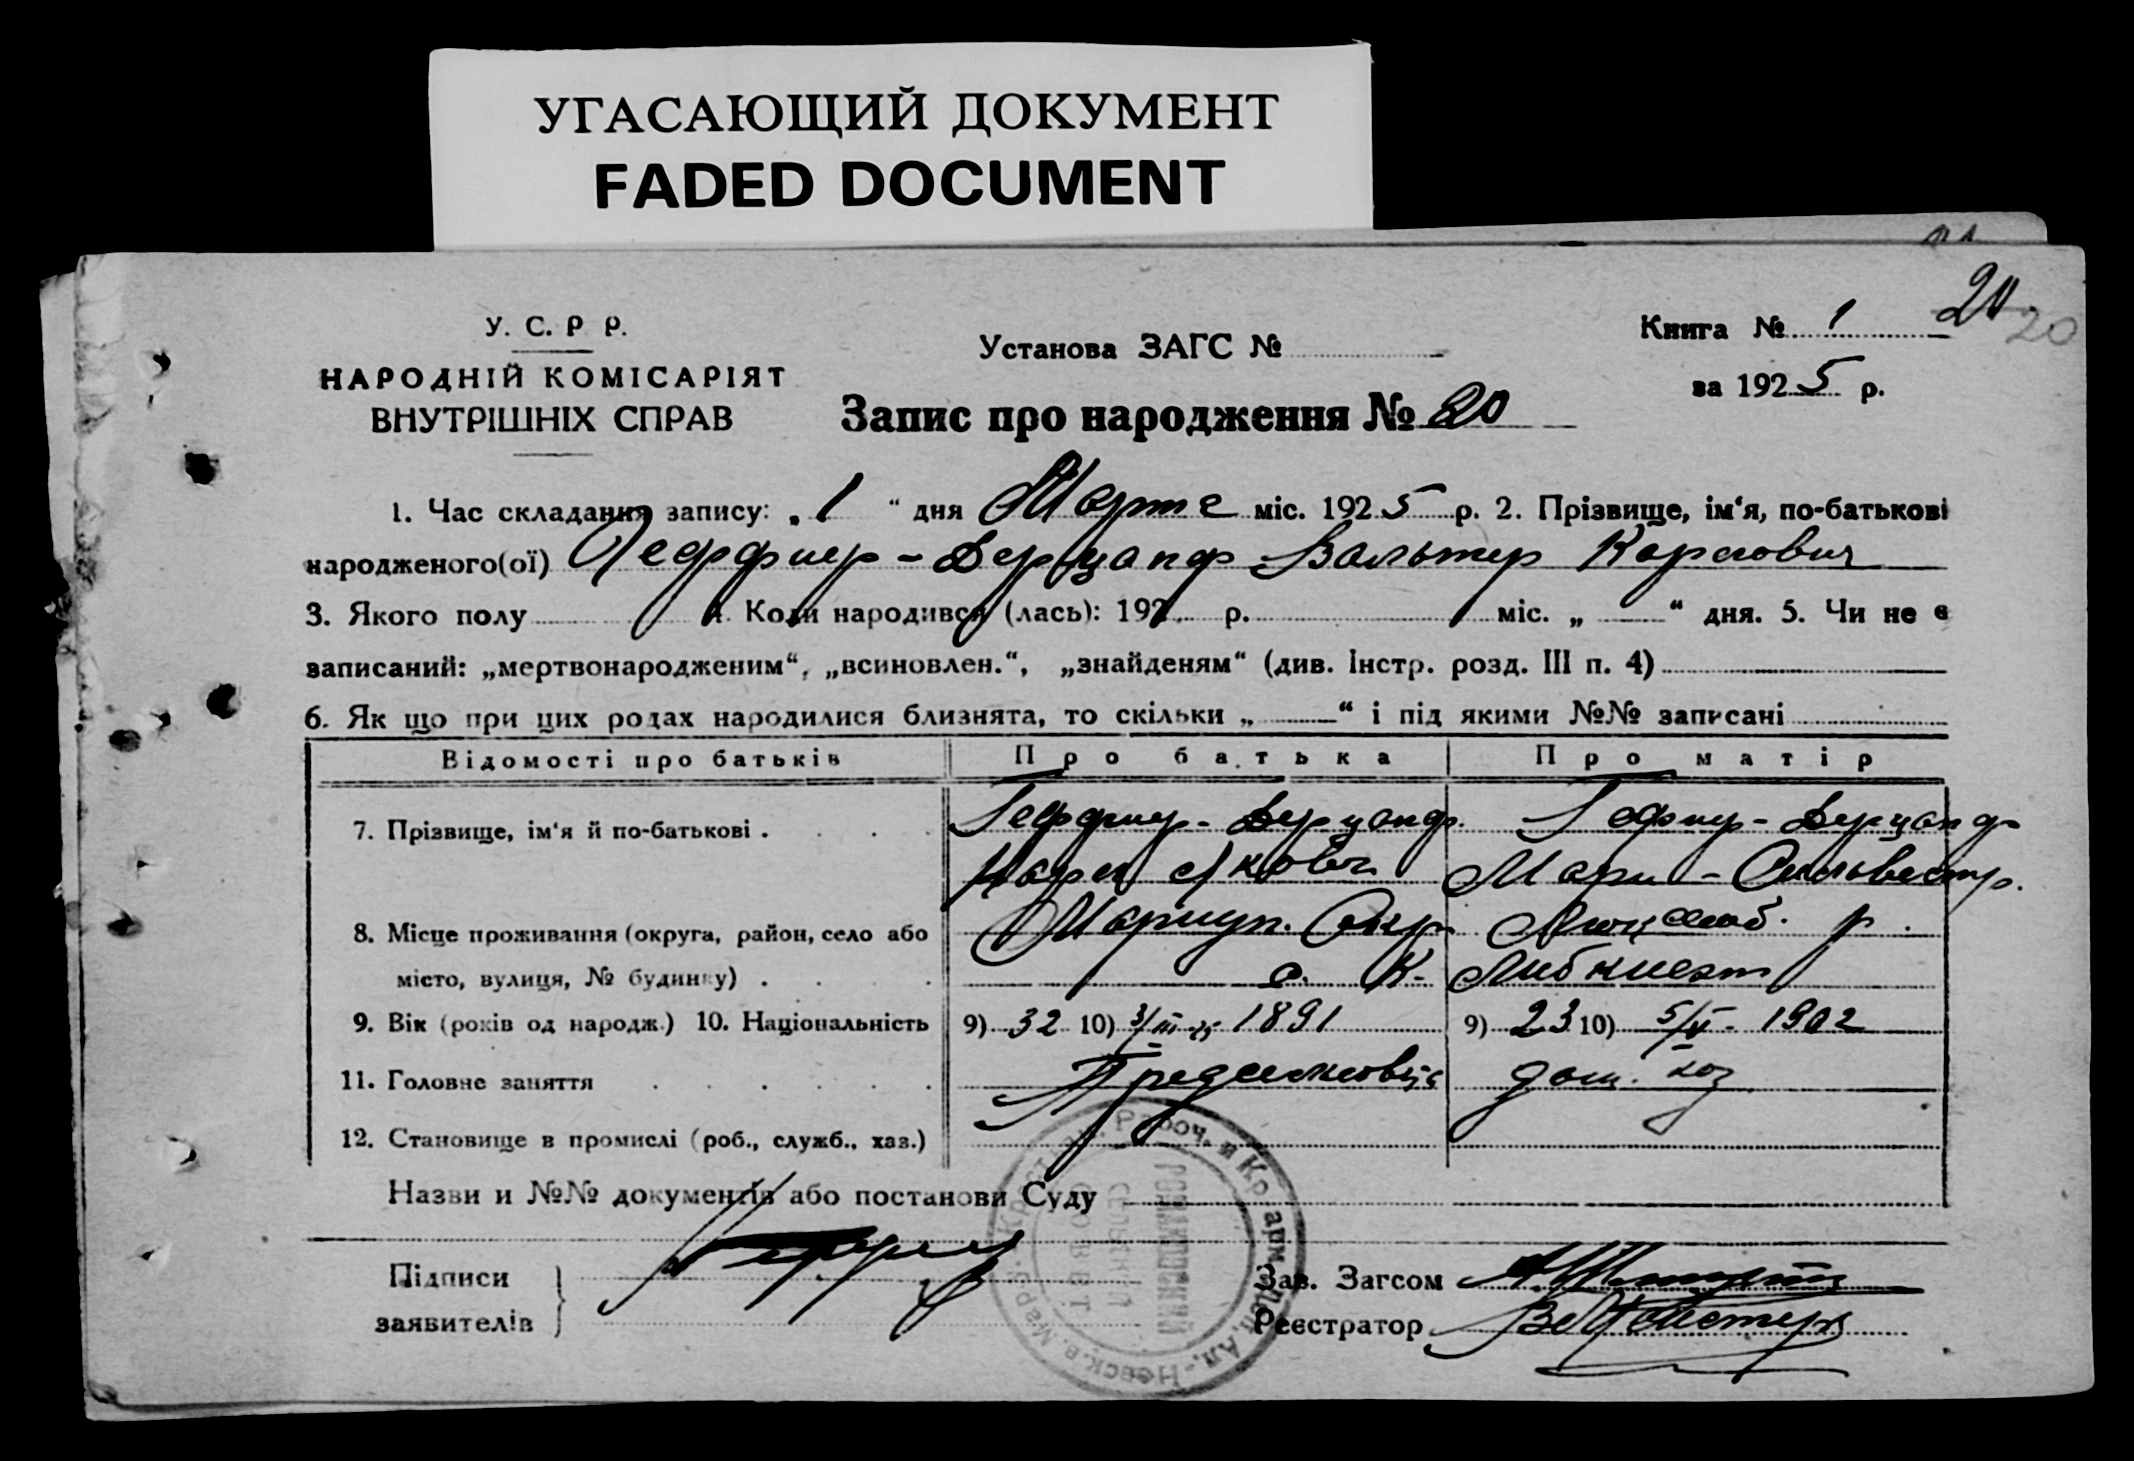 УГАСАЮЩИЙ ДОКУМЕНТ
FADED DOCUMENT
20
У. С. Р Р.
НАРОДНІЙ КОМІСАРІЯТ
ВНУТРІШНІХ СПРАВ
Установа ЗАГС №
Книга № 1
за 1925 р.
Запис про народження № 20
1. Час складання запису: „ 1 “ дня Марта міс. 1925 р. 2. Прізвище, ім‘я, по-батькові
народженого(ої) Геффнер-Дерцапф Вальтер Карлович
3. Якого полу 4. Коли народився (лась): 192 р. міс. „ “ дня. 5. Чи не є
записаний: „мертвонародженим“, „всиновлен.“, „знайденям“ (див. Інстр. розд. III п. 4)
6. Як що при цих родах народилися близнята, то скільки „ “ і під якими №№ записані
Відомості про батьків Про батька Про матір
7. Прізвище, ім‘я й по-батькові . Геффнер-Дерцапф. Гефнер-Дерцапф
Карл Мари-
8. Місце проживання (округа, район, село або Мариуп. Окр. Люксемб. р.
місто, вулиця, № будинку) . с. К. Либкнехт
9. Вік (років од народж.) 10. Національність 9) 32 10) 1891 9) 23 10) 5/V- 1902
11. Головне заняття дом. хоз
12. Становище в промислі (роб., служб., хаз.)
Назви и №№ документів або постанови Суду
Підписи
заявителів
Зав. Загсом
Реєстратор